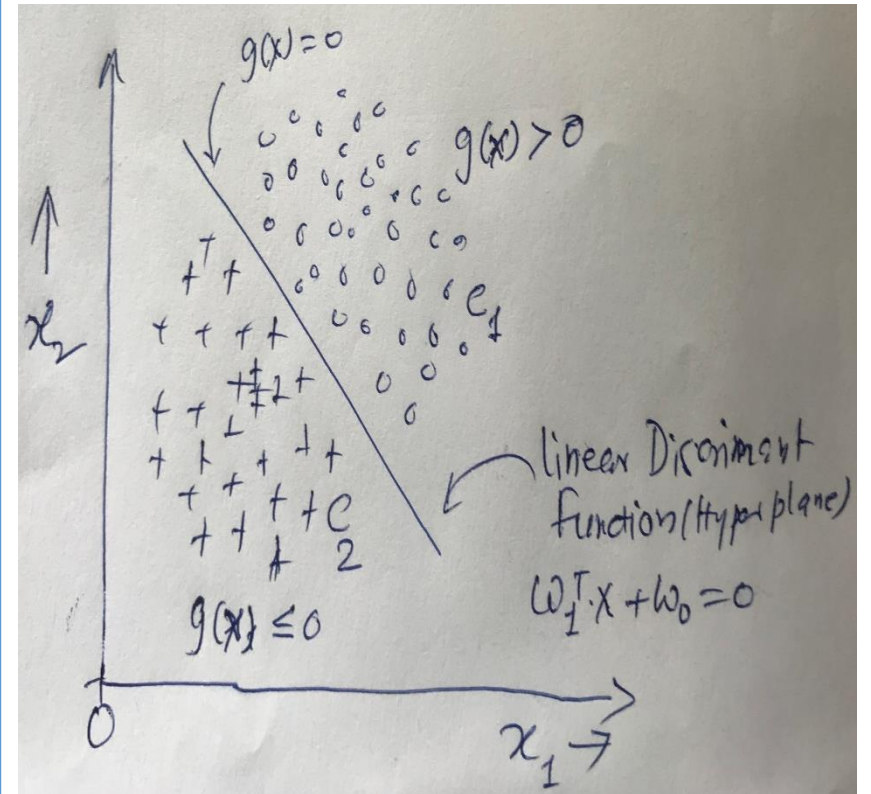 g(x)=0
g(x) > 0
x₂
C₁
linear Discriminant
function (Hyper plane)
C₂
ω₁ᵀ.x + ω₀ = 0
g(x) ≤ 0
0
x₁ →